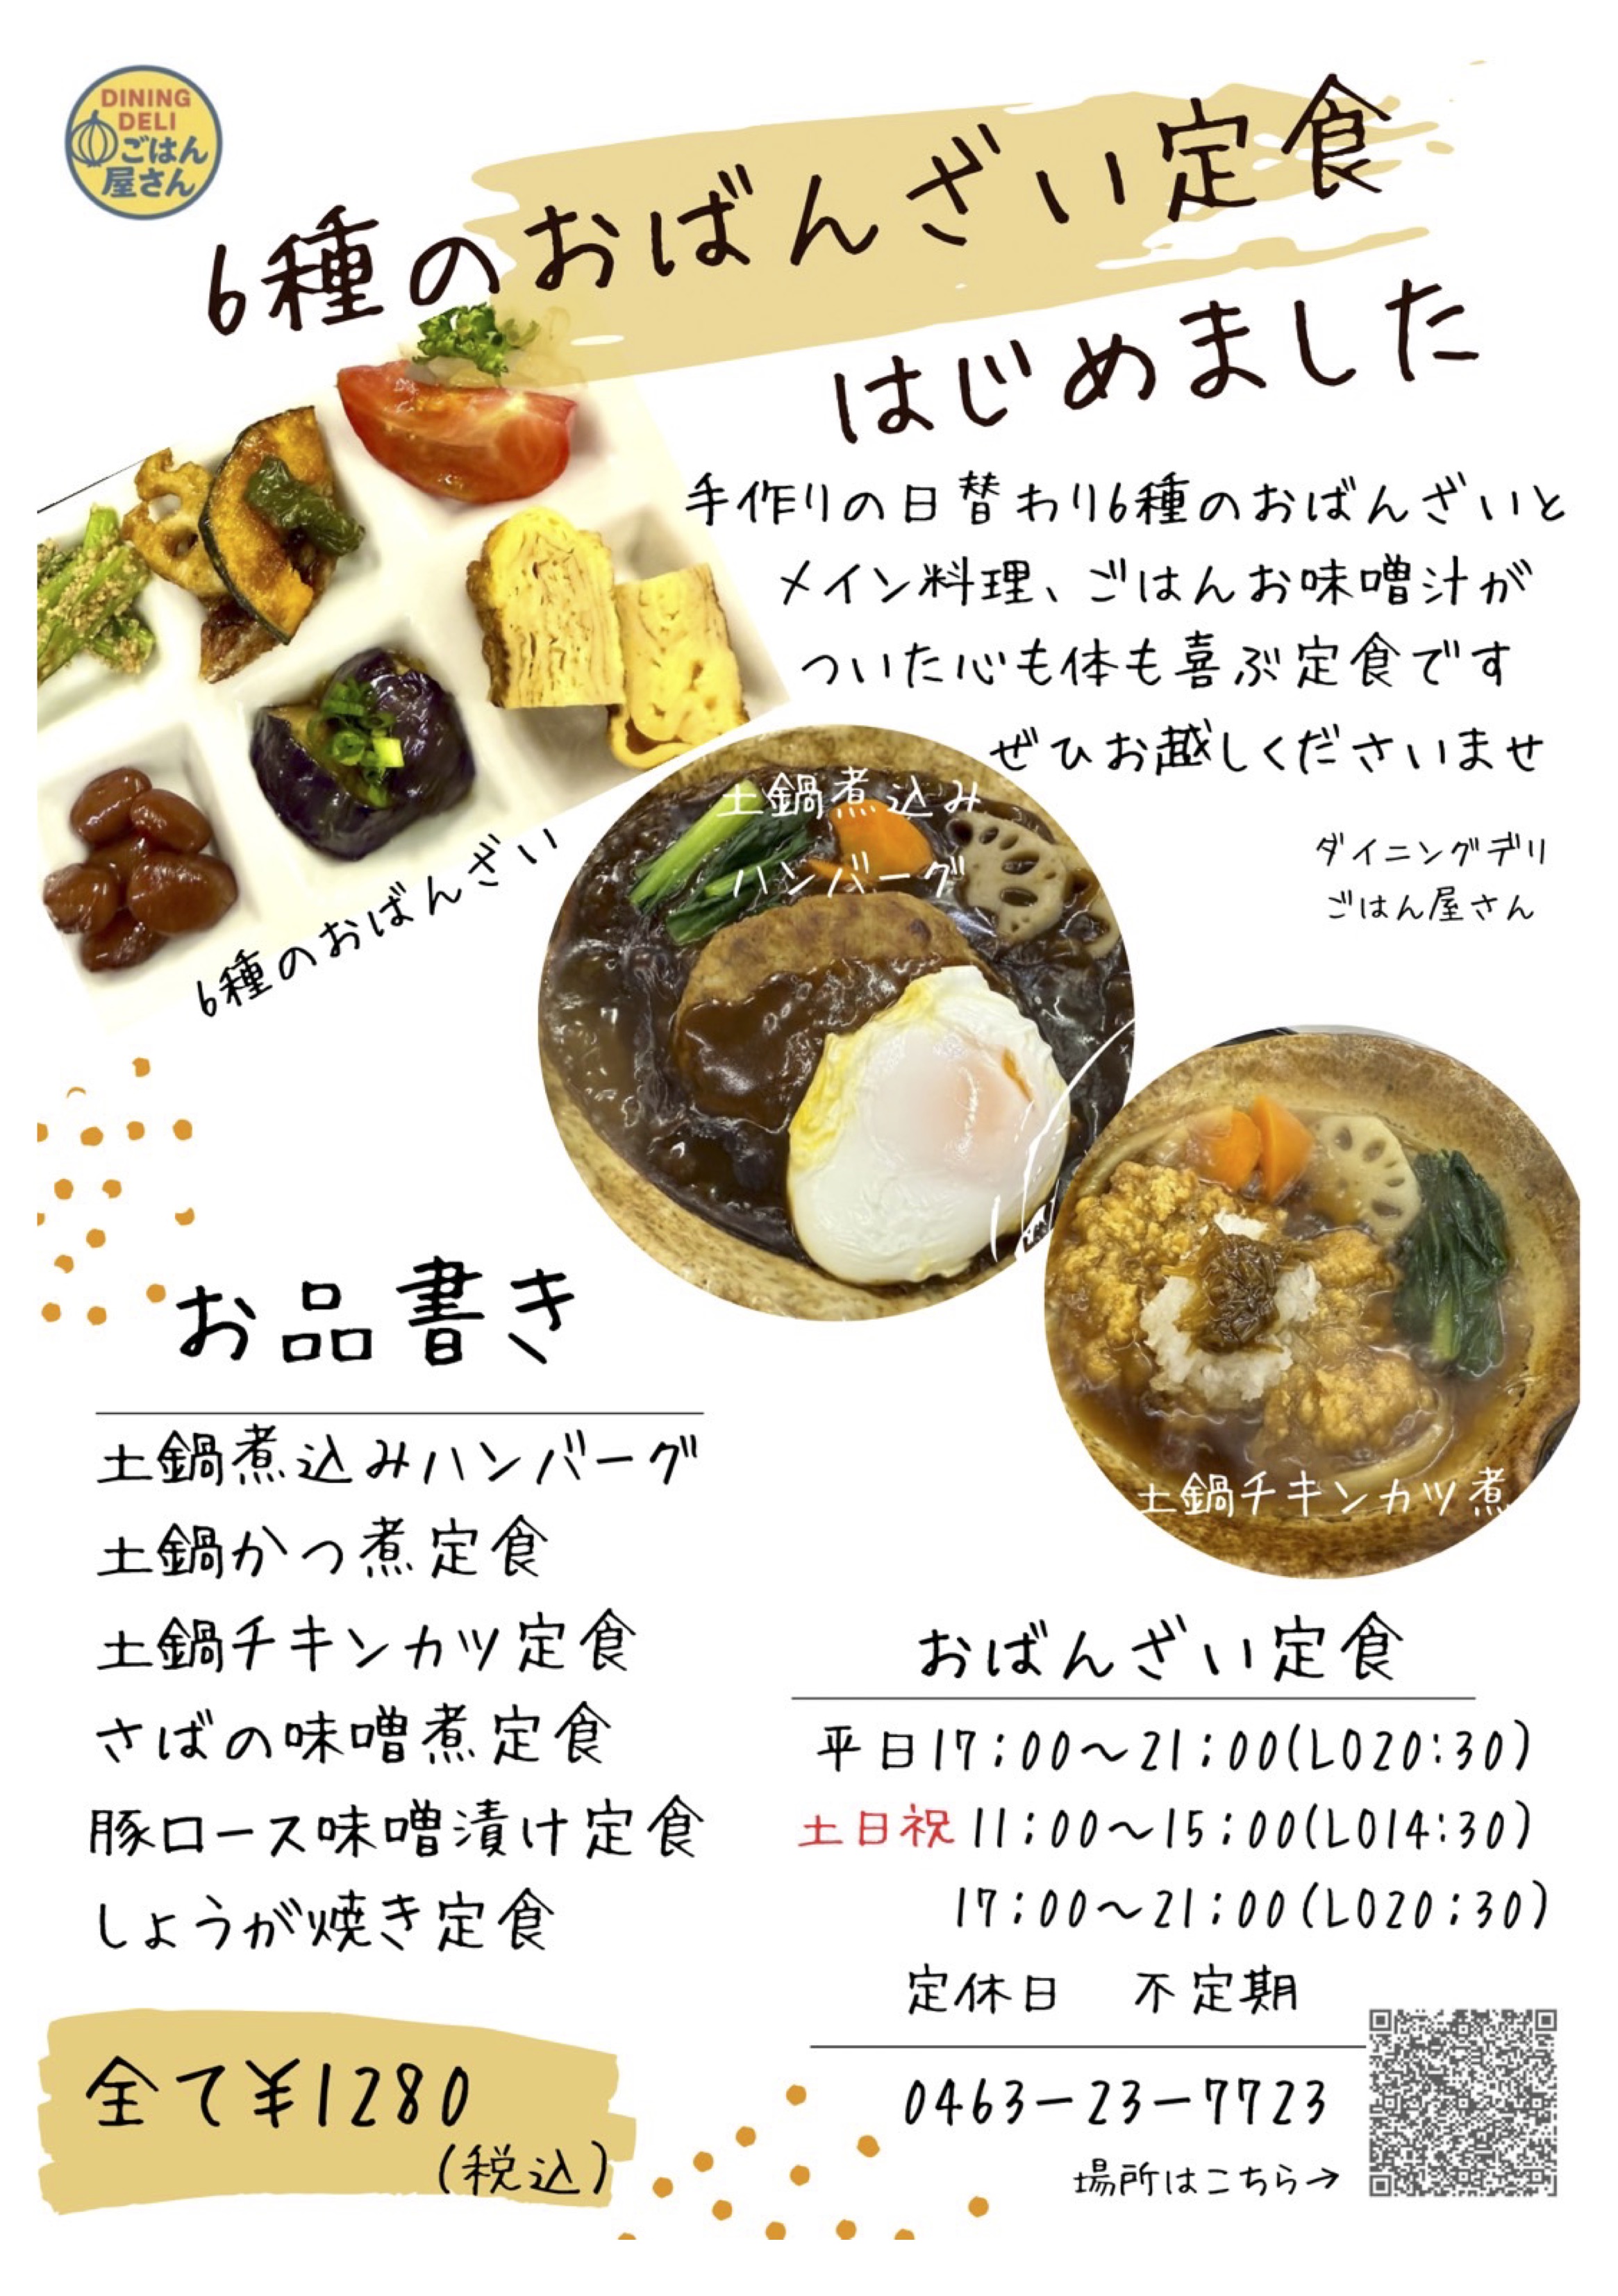 DINING
DELI
ごはん
屋さん
6種のおばんざい定食
はじめました
手作りの日替わり6種のおばんざいと
メイン料理、ごはんお味噌汁が
ついた心も体も喜ぶ定食です
ぜひお越しくださいませ
ダイニングデリ
ごはん屋さん
6種のおばんざい
土鍋煮込み
ハンバーグ
土鍋チキンカツ煮
お品書き
土鍋煮込みハンバーグ
土鍋かつ煮定食
土鍋チキンカツ定食
さばの味噌煮定食
豚ロース味噌漬け定食
しょうが焼き定食
全て¥1280
(税込)
おばんざい定食
平日17:00〜21:00(LO20:30)
土日祝 11:00〜15:00(LO14:30)
17:00〜21:00(LO20:30)
定休日 不定期
0463-23-7723
場所はこちら→